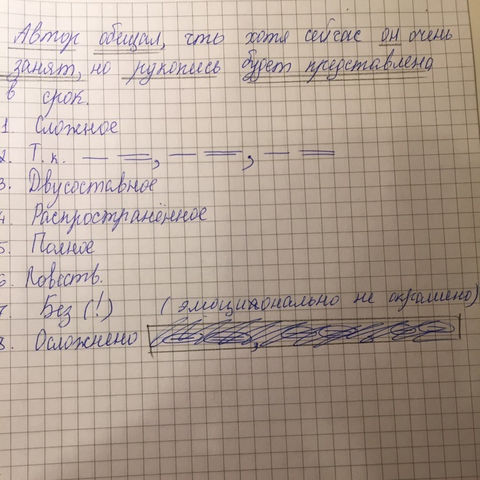 Автор обещал, что хотя сейчас он очень
занят, но рукопись будет представлена
в срок.
1. Сложное
2. Т.к. — ═, — ═, — ═
3. Двусоставное
4. Распространённое
5. Полное
6. Повеств.
7. Без (!) (эмоционально не окрашено)
8. Осложнено